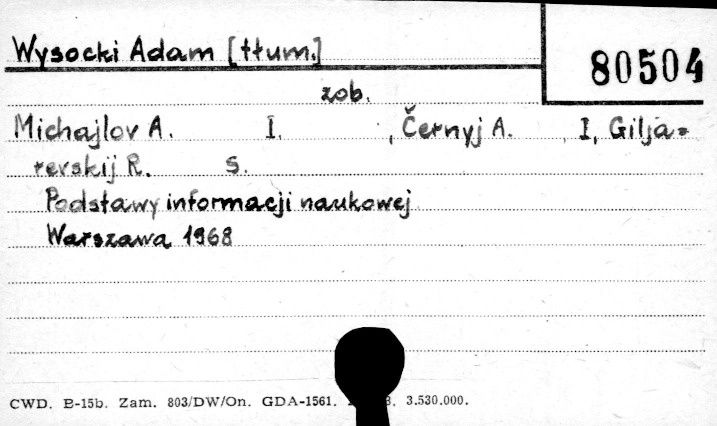 Wysocki Adam [tłum.]
80504
zob.
Michajlov A. I. , Černyj A. I, Gilja=
revskij R. S.
Podstawy informacji naukowej
Warszawa 1968
CWD. B-15b. Zam. 803/DW/On. GDA-1561. 3.530.000.